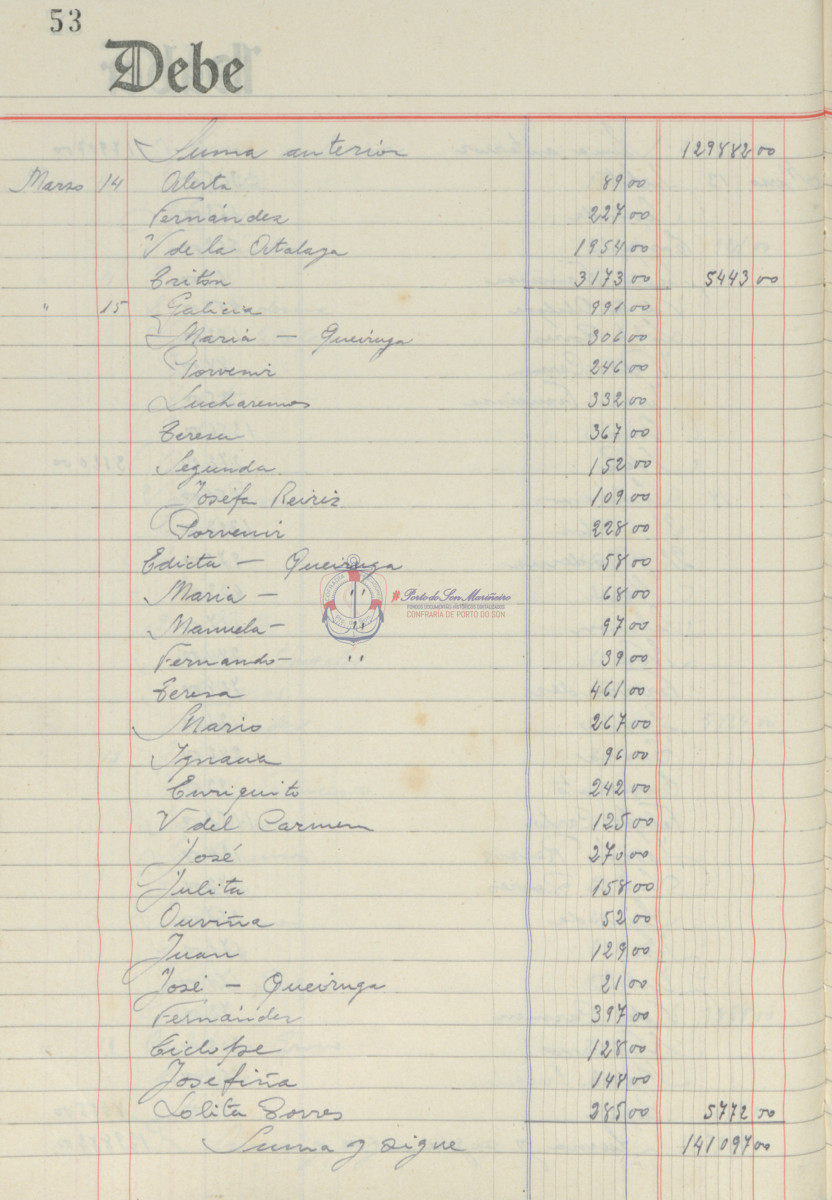 53
Debe
Suma anterior 129882 00
Marzo 14 Alerta 89 00
Fernández 227 00
V de la Atalaya 1954 00
Tritón 3173 00 5443 00
" 15 Galicia 991 00
Maria — Queiruga 306 00
Porvenir 246 00
Lucharemos 332 00
Teresa 367 00
Segunda 152 00
Josefa Reiriz 109 00
Porvenir 228 00
Edicta — Queiruga 58 00
Maria — " 68 00
Manuela — " 97 00
Fernando — " 39 00
Teresa 461 00
Mario 267 00
Ignacia 96 00
Enriquito 242 00
V del Carmen 125 00
José 270 00
Julita 158 00
Ouviña 52 00
Juan 129 00
José — Queiruga 21 00
Fernández 397 00
Ciclope 128 00
Josefiña 148 00
Lolita Torres 285 00 5772 00
Suma y sigue 141097 00
#Porto do Son Mariñeiro
FONDOS DOCUMENTAIS HISTÓRICOS DIXITALIZADOS
CONFRARÍA DE PORTO DO SON